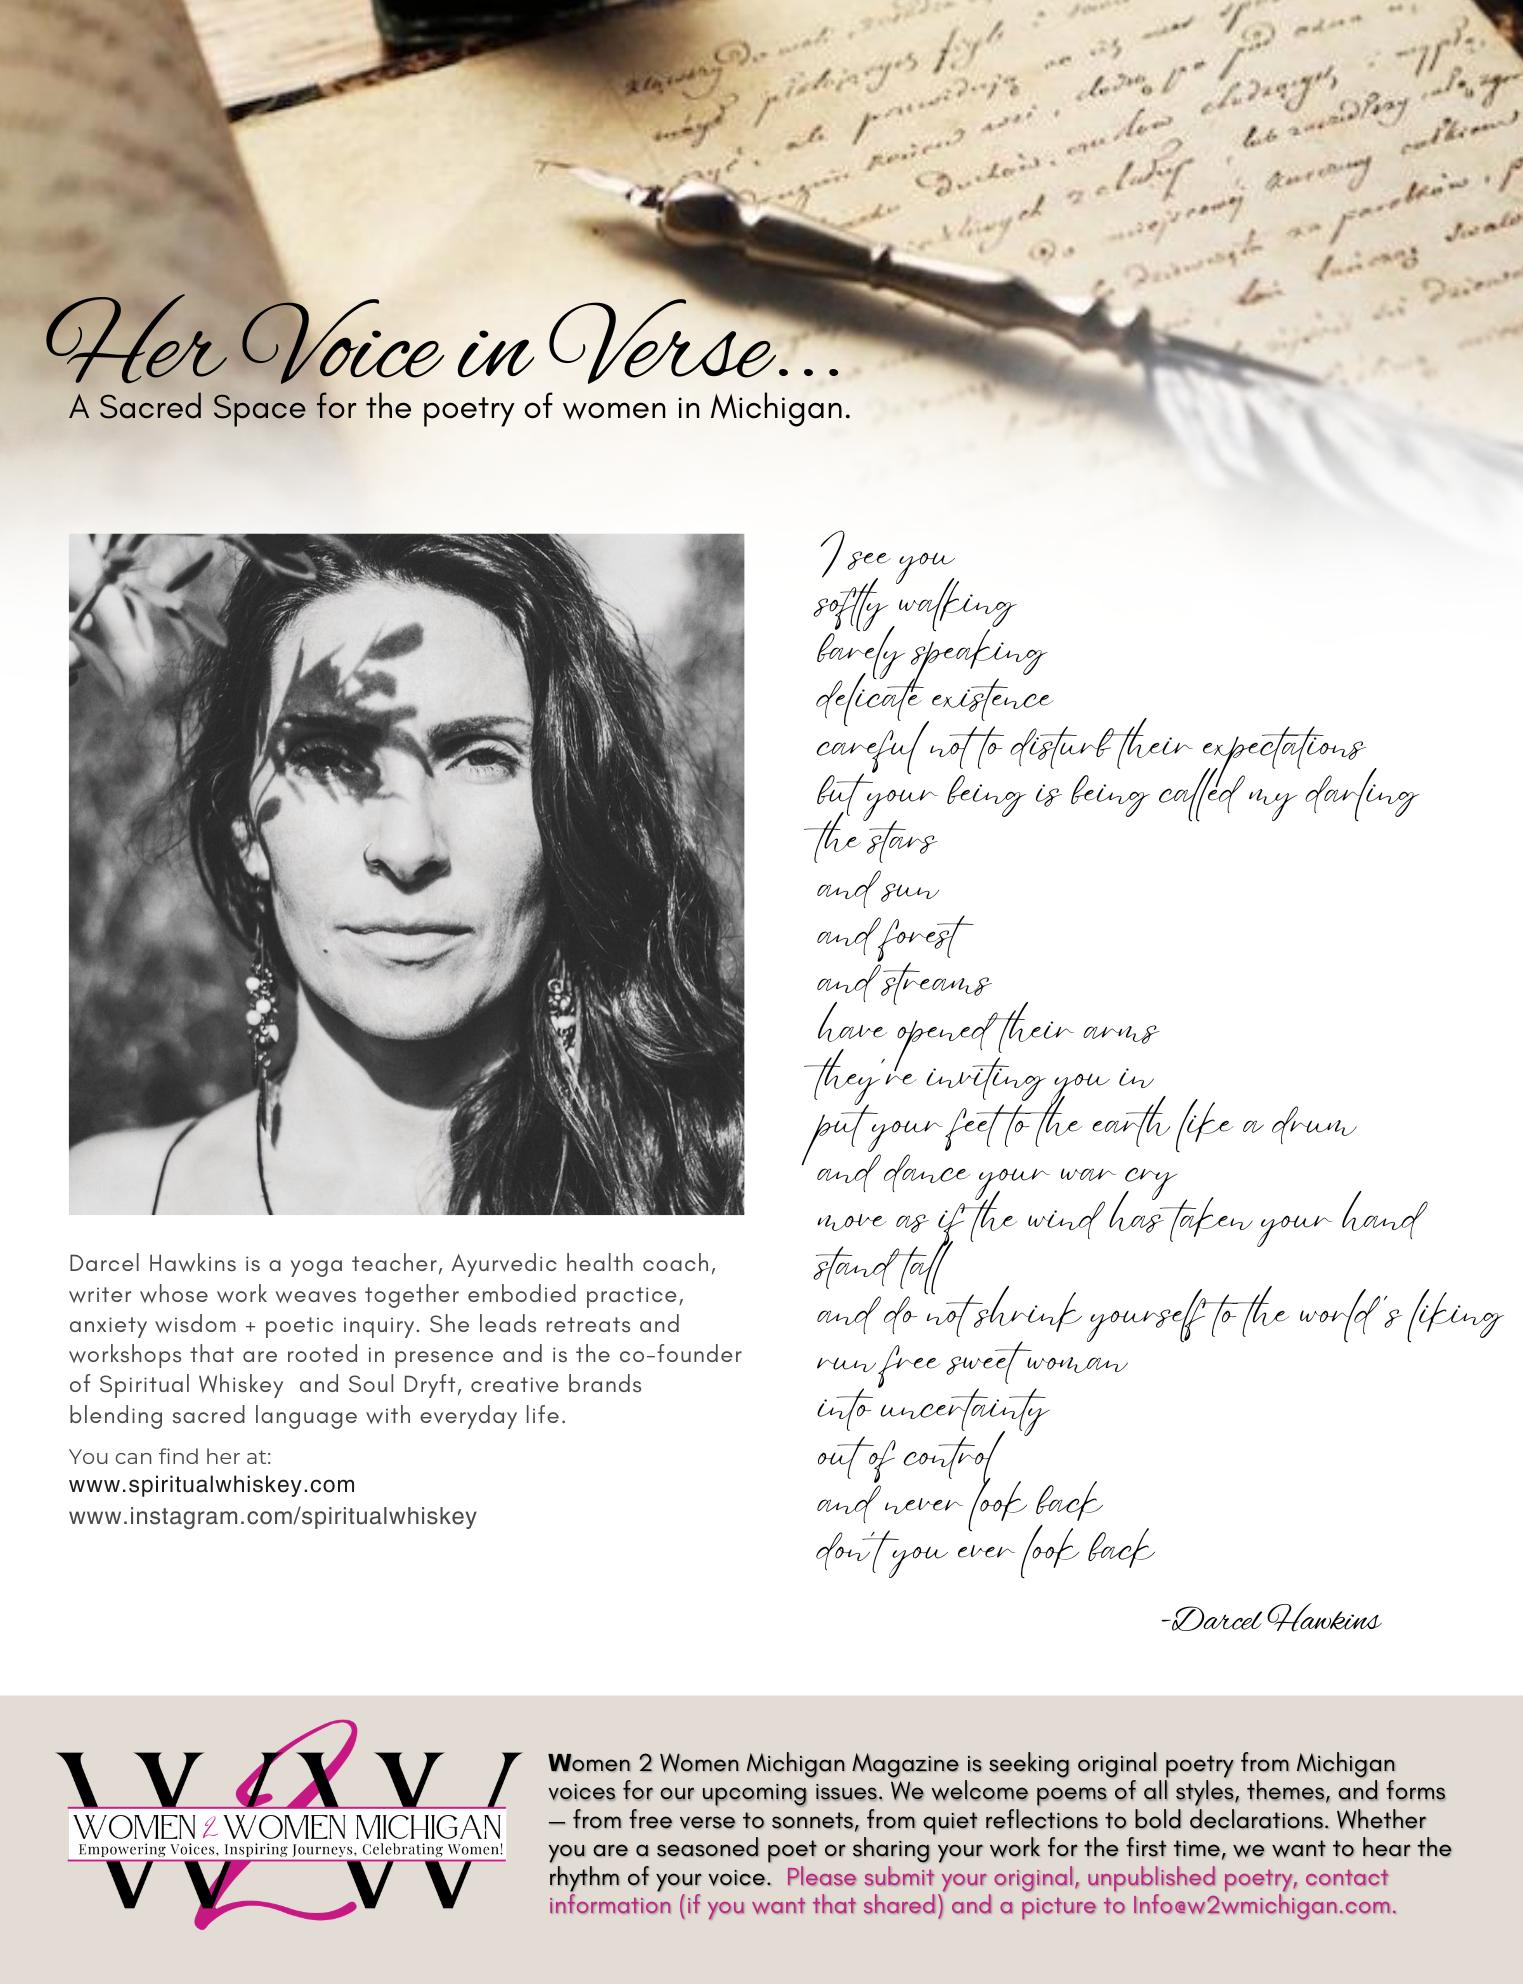 Her Voice in Verse...
A Sacred Space for the poetry of women in Michigan.
I see you
softly walking
barely speaking
delicate existence
careful not to disturb their expectations
but your being is being called my darling
the stars
and sun
and forest
and streams
have opened their arms
they're inviting you in
put your feet to the earth like a drum
and dance your war cry
move as if the wind has taken your hand
stand tall
and do not shrink yourself to the world's liking
run free sweet woman
into uncertainty
out of control
and never look back
don't you ever look back
-Darcel Hawkins
Darcel Hawkins is a yoga teacher, Ayurvedic health coach,
writer whose work weaves together embodied practice,
anxiety wisdom + poetic inquiry. She leads retreats and
workshops that are rooted in presence and is the co-founder
of Spiritual Whiskey  and Soul Dryft, creative brands
blending sacred language with everyday life.
You can find her at:
www.spiritualwhiskey.com
www.instagram.com/spiritualwhiskey
W2W
WOMEN 2 WOMEN MICHIGAN
Empowering Voices, Inspiring Journeys, Celebrating Women!
Women 2 Women Michigan Magazine is seeking original poetry from Michigan
voices for our upcoming issues. We welcome poems of all styles, themes, and forms
— from free verse to sonnets, from quiet reflections to bold declarations. Whether
you are a seasoned poet or sharing your work for the first time, we want to hear the
rhythm of your voice.  Please submit your original, unpublished poetry, contact
information (if you want that shared) and a picture to Info@w2wmichigan.com.